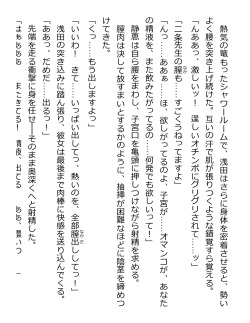 熱気の竜もったシャワールームで、浅田はさらに身体を密着させると、勢い
よく腰を突き上げ続けた。互いの汗で肌が張りつくような錯覚すら覚える。
「んああっ、激しいッ！　逞しいオチンポにグリグリされて……ッ」
「二条先生の膣も……すごくうねってますよ」
「んっ……ああぁ……ほ、欲しがってるのよ、子宮が……オマンコが、あなた
の精液を、また飲みたがってるの……何発でも欲しいって！」
　静恵は自ら腰をまわし、子宮口を亀頭に押しつけながら射精を求める。
　膣肉は決して放すまいとするかのように、抽挿が困難なほどに陰茎を締めつ
けてきた。
「くっ……もう出しますよっ」
「いいわ！　きて……いっぱい出してっ、熱いのを、全部膣出ししてっ！」
「ああっ、だめだ……出るっ！」
　浅田の突き込みに踏ん張り、彼女は最後まで肉棒に快感を送り込んでくる。
　先端を走る衝撃に身を任せ――そのまま奥深くへと射精した。